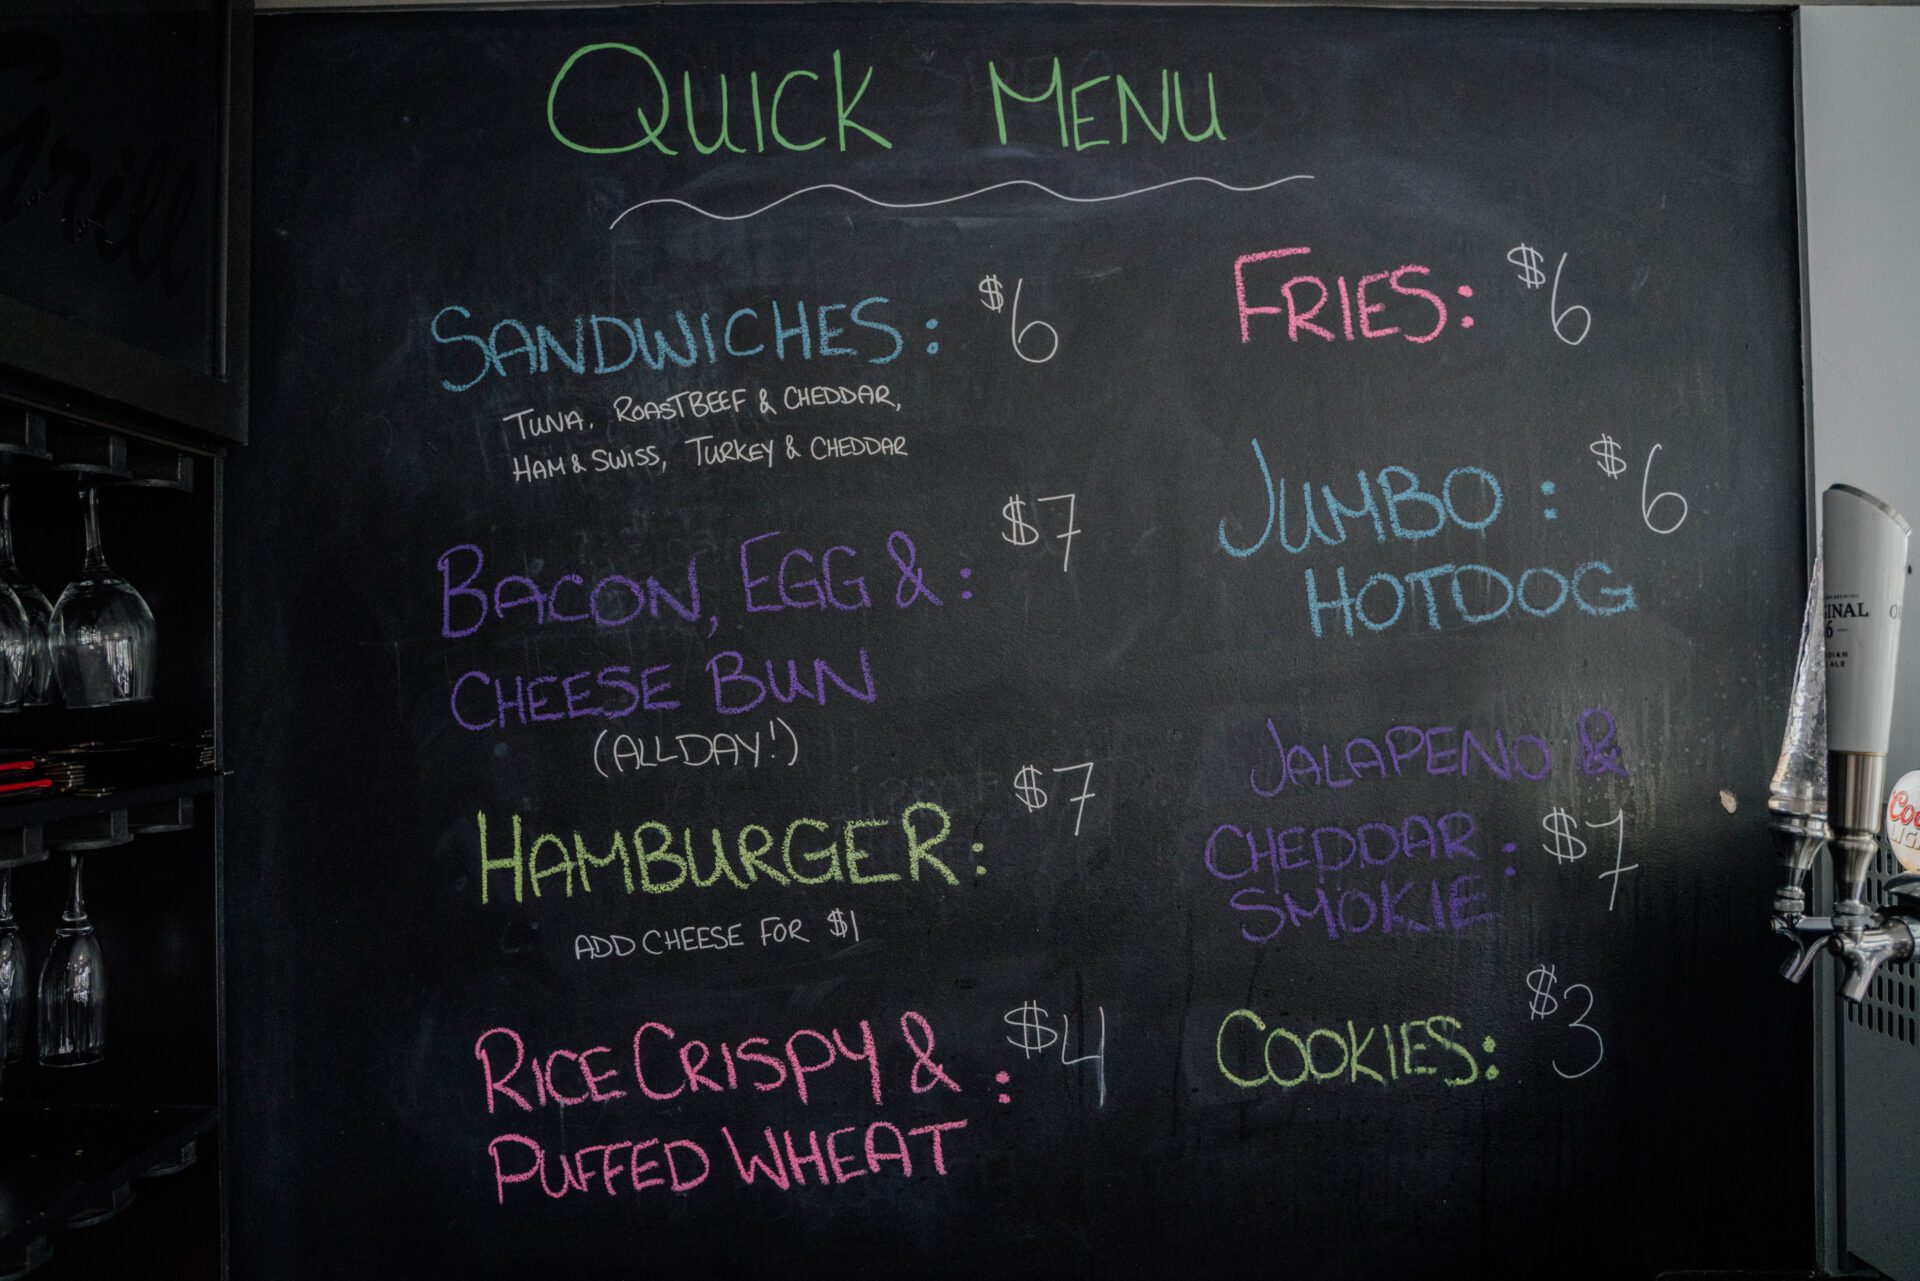 Grill
QUICK MENU
SANDWICHES: $6
TUNA. ROASTBEEF & CHEDDAR,
HAM & SWISS, TURKEY & CHEDDAR
BACON, EGG & : $7
CHEESE BUN
(ALLDAY!)
HAMBURGER: $7
ADD CHEESE FOR $1
RICE CRISPY & : $4
PUFFED WHEAT
FRIES: $6
JUMBO : $6
HOTDOG
JALAPENO &
CHEDDAR : $7
SMOKIE
COOKIES: $3